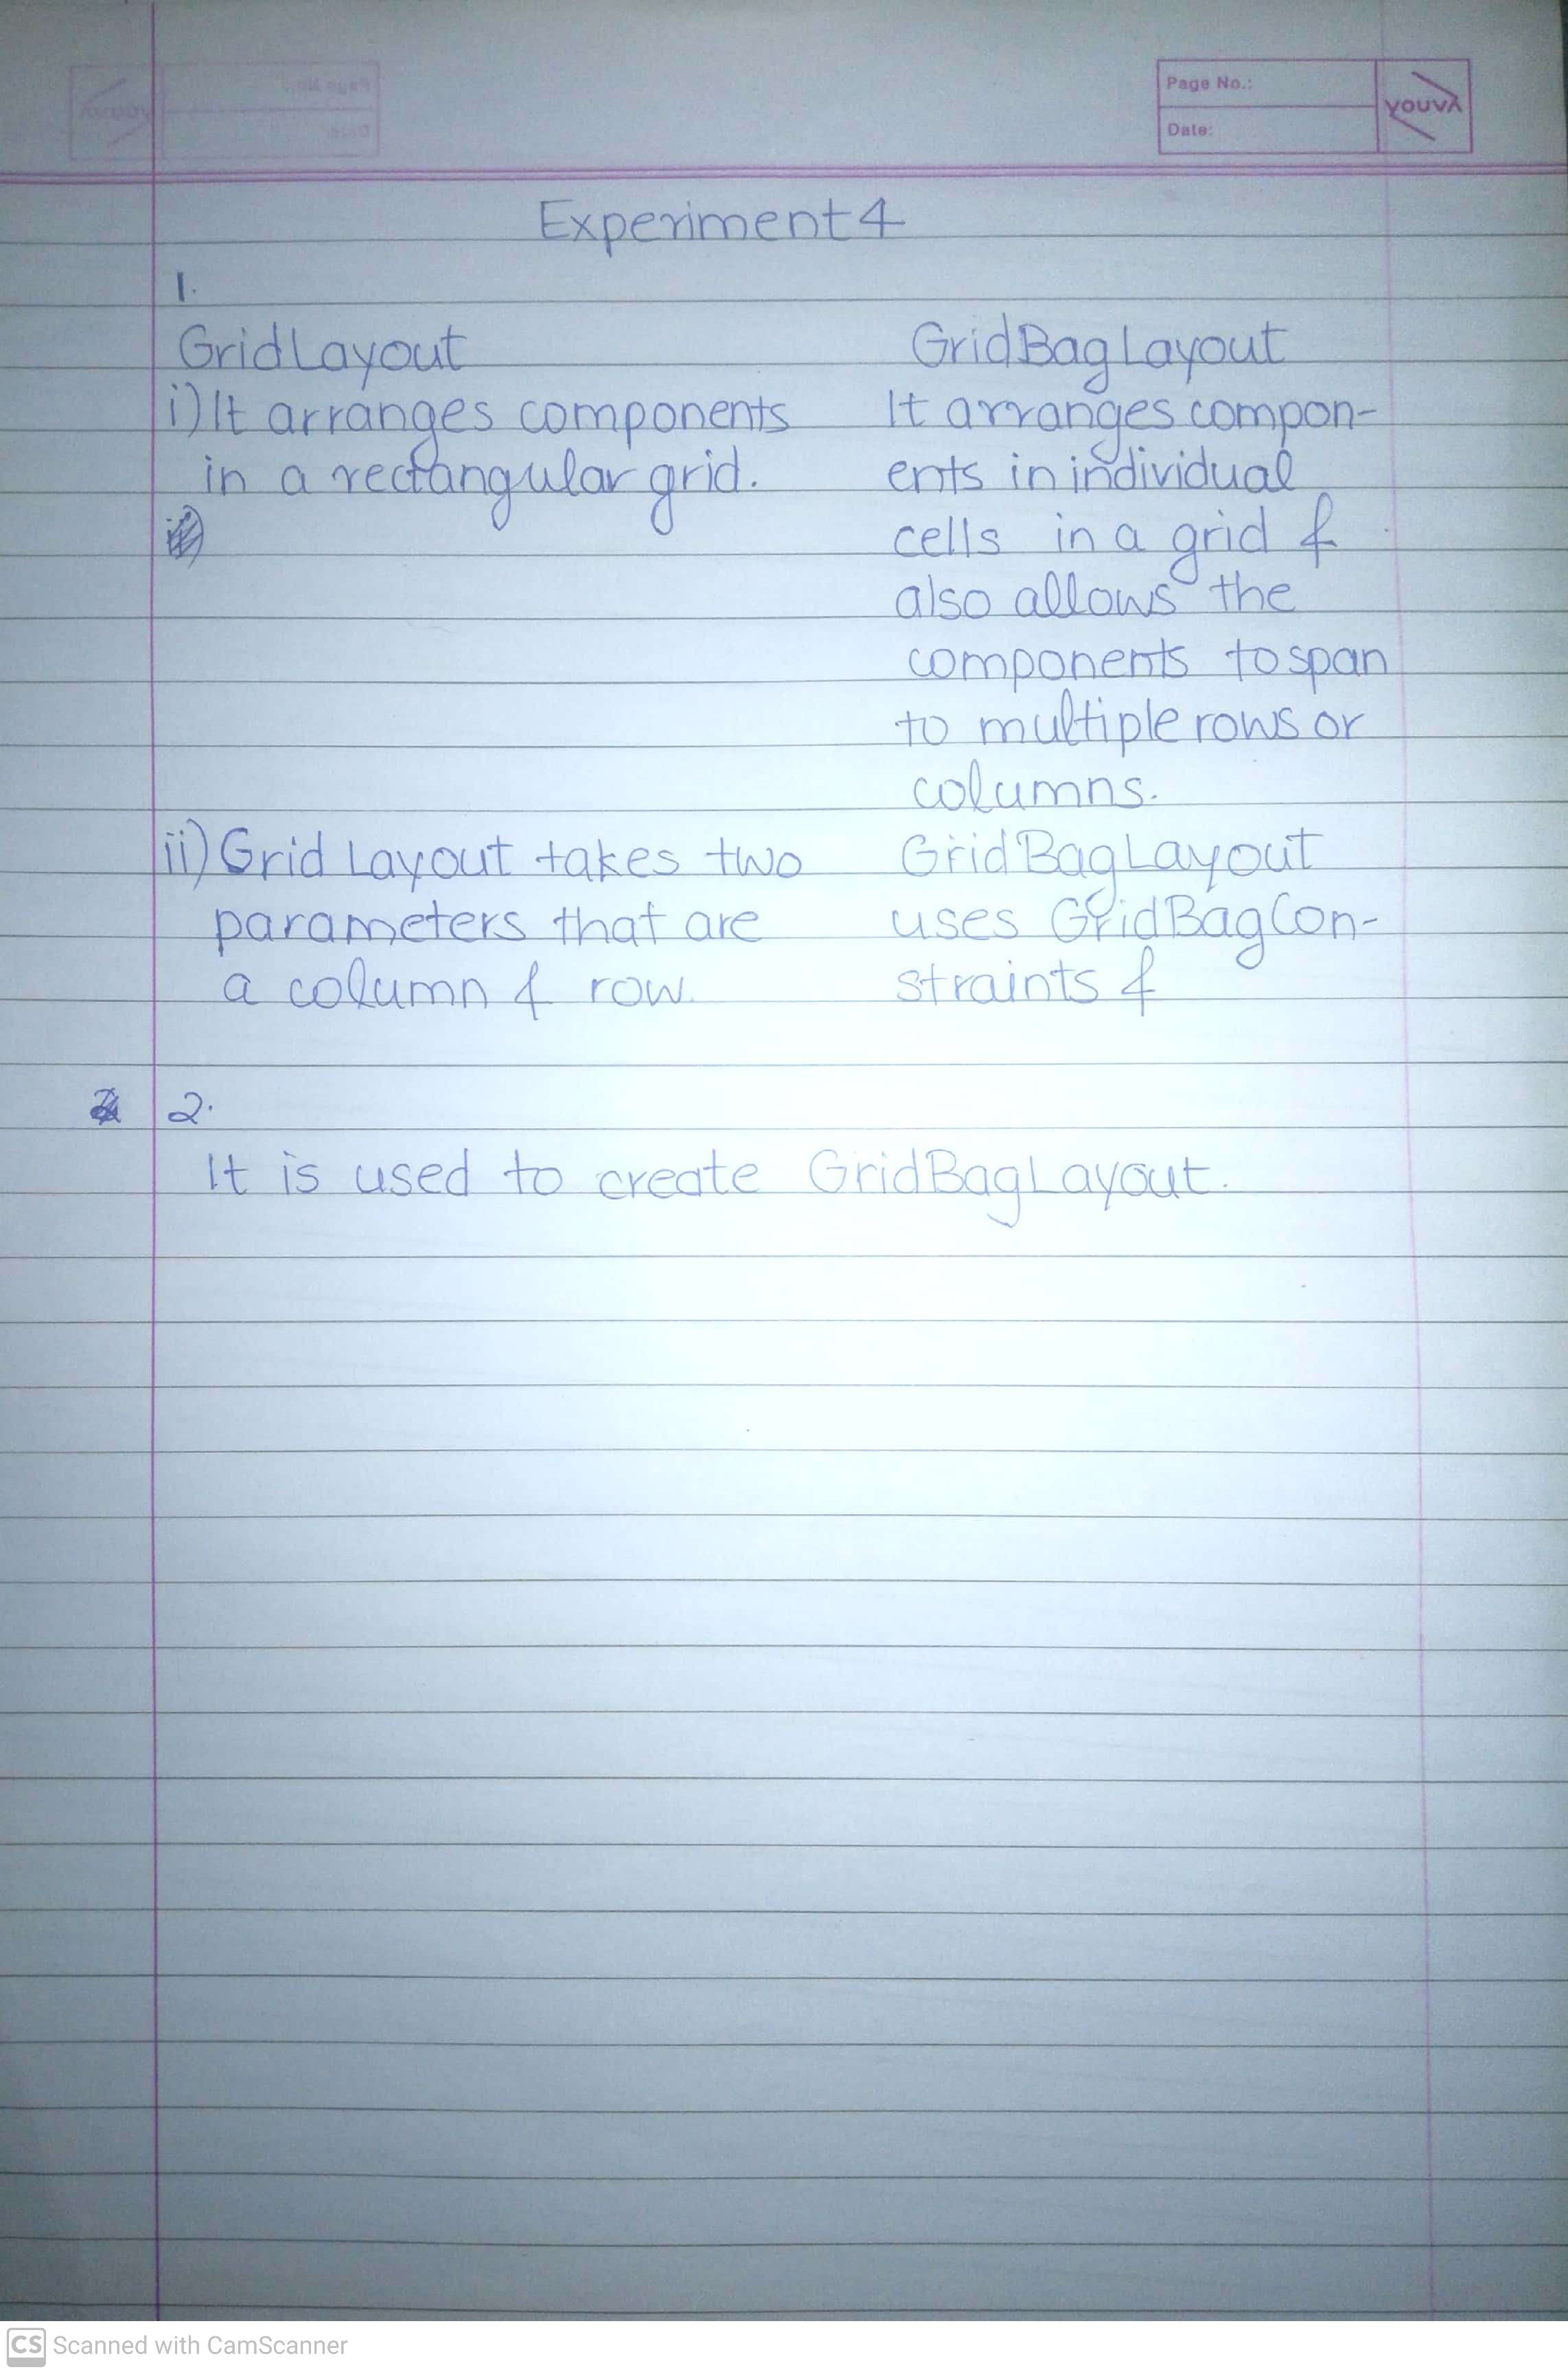 Page No.:
Date:
YOUVA
Experiment 4
1.
GridLayout
i) It arranges components
in a rectangular grid.
GridBagLayout
It arranges compon-
ents in individual
cells in a grid &
also allows the
components to span
to multiple rows or
columns.
ii) Grid Layout takes two
parameters that are
a column & row.
GridBagLayout
uses GridBagCon-
straints &
2.
It is used to create GridBagLayout.
CS Scanned with CamScanner